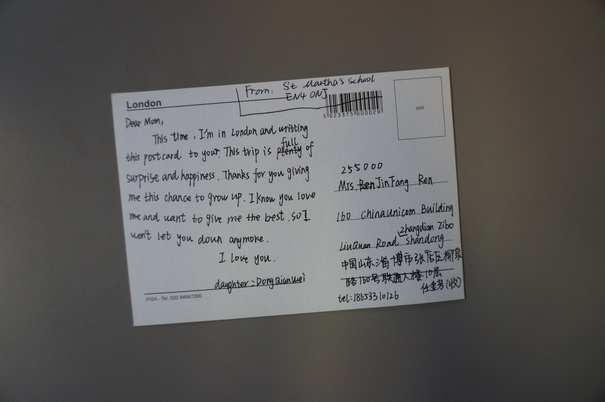 London
From: St Martha's school
EN4 0NJ
5023375000029
Dear Mom,
This time, I'm in London and writting
this postcard to your. This trip is plenty full of
surprise and happiness. Thanks for you giving
me this chance to grow up. I know you love
me and want to give me the best. so I
won't let you down anymore.
I love you.
daughter: DongQianWei
255000
Mrs. Ren JinFang Ren
160 ChinaUnicom Building
Zhangdian Zibo
LiuQuan Road Shandong
中国山东淄博市张店区柳泉
路160号联通大楼10层
任金芳(收)
tel: 18653310126